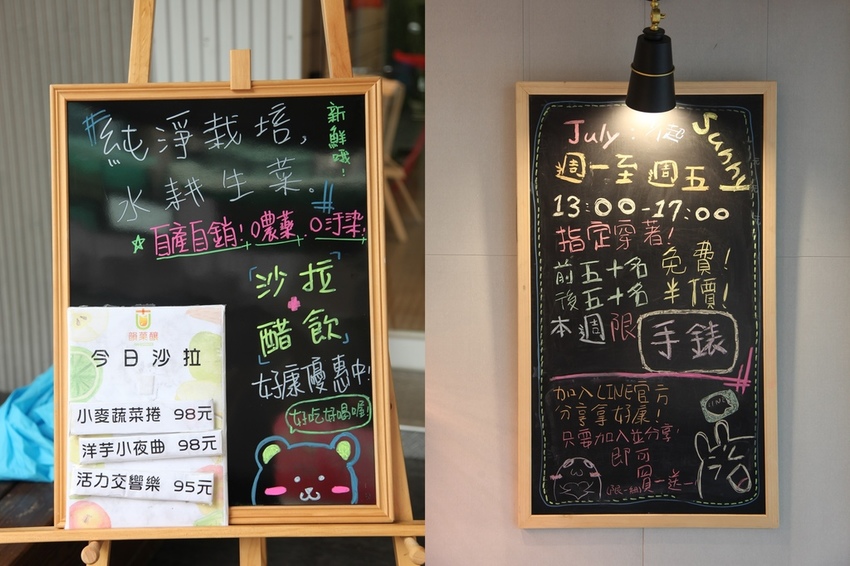 #純淨栽培,
新鮮哦!
水耕生菜。#
自產自銷!0農藥.0汙染!
「沙拉
+
醋飲」
好康優惠中!
好吃好喝喔!
今日沙拉
小麥蔬菜捲 98元
洋芋小夜曲 98元
活力交響樂 95元
July.
Sunny
週一至週五
13:00-17:00
指定穿著!
前五十名免費!
後五十名半價!
本週限手錶
#
加入LINE官方
分享拿好康!
只要加入並分享,
即可
買一送一